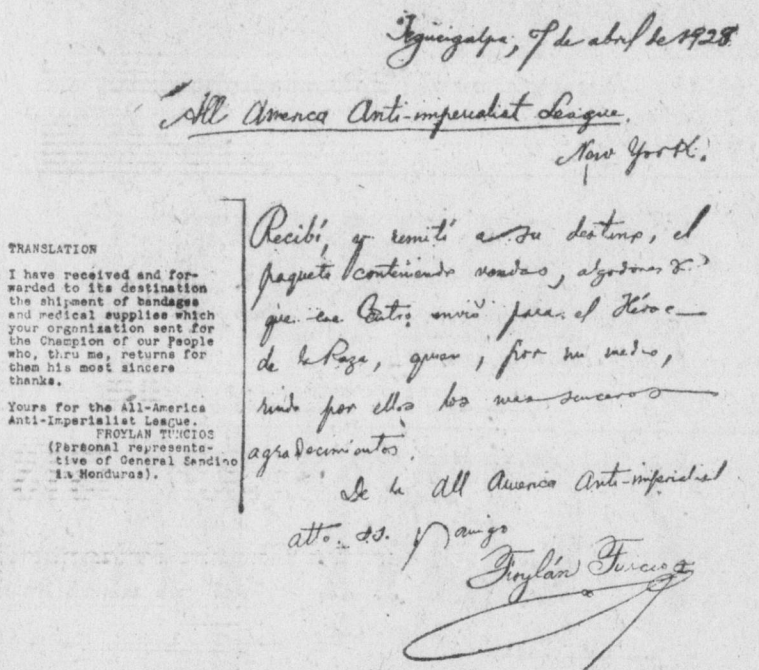 Tegucigalpa, 7 de abril de 1928
All America Anti-imperialist League.
New York.
TRANSLATION
I have received and for-
warded to its destination
the shipment of bandages
and medical supplies which
your organization sent for
the Champion of our People
who, thru me, returns for
them his most sincere
thanks.
Yours for the All-America
Anti-Imperialist League.
FROYLAN TURCIOS
(Personal representa-
tive of General Sandino
in Honduras).
Recibí, y remití a su destino, el
paquete conteniendo vendas, algodones &
que ese Centro envió para el Héroe
de la Raza, quien, por mi medio,
rinde por ellos los mas sinceros
agradecimientos.
De la All America Anti-imperialist
atto. s.s. y amigo
Froylán Turcios